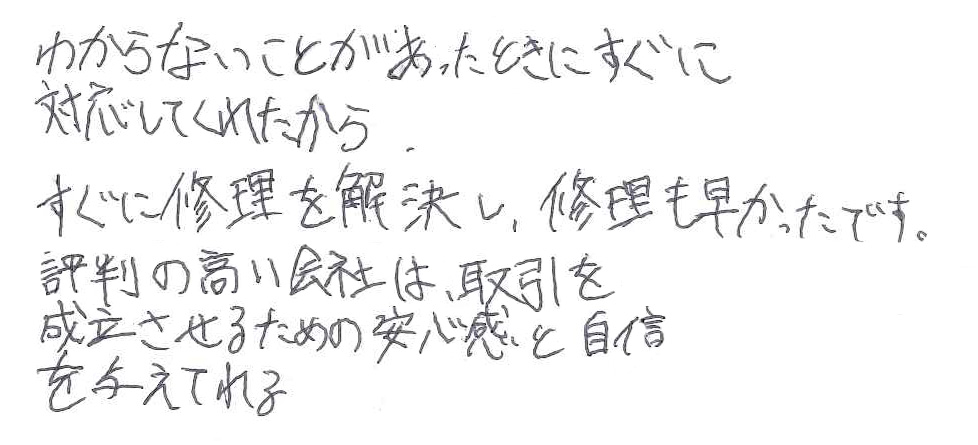 わからないことがあったときにすぐに
対応してくれたから.
すぐに修理を解決し、修理も早かったです。
評判の高い会社は、取引を
成立させるための安心感と自信
を与えてれる